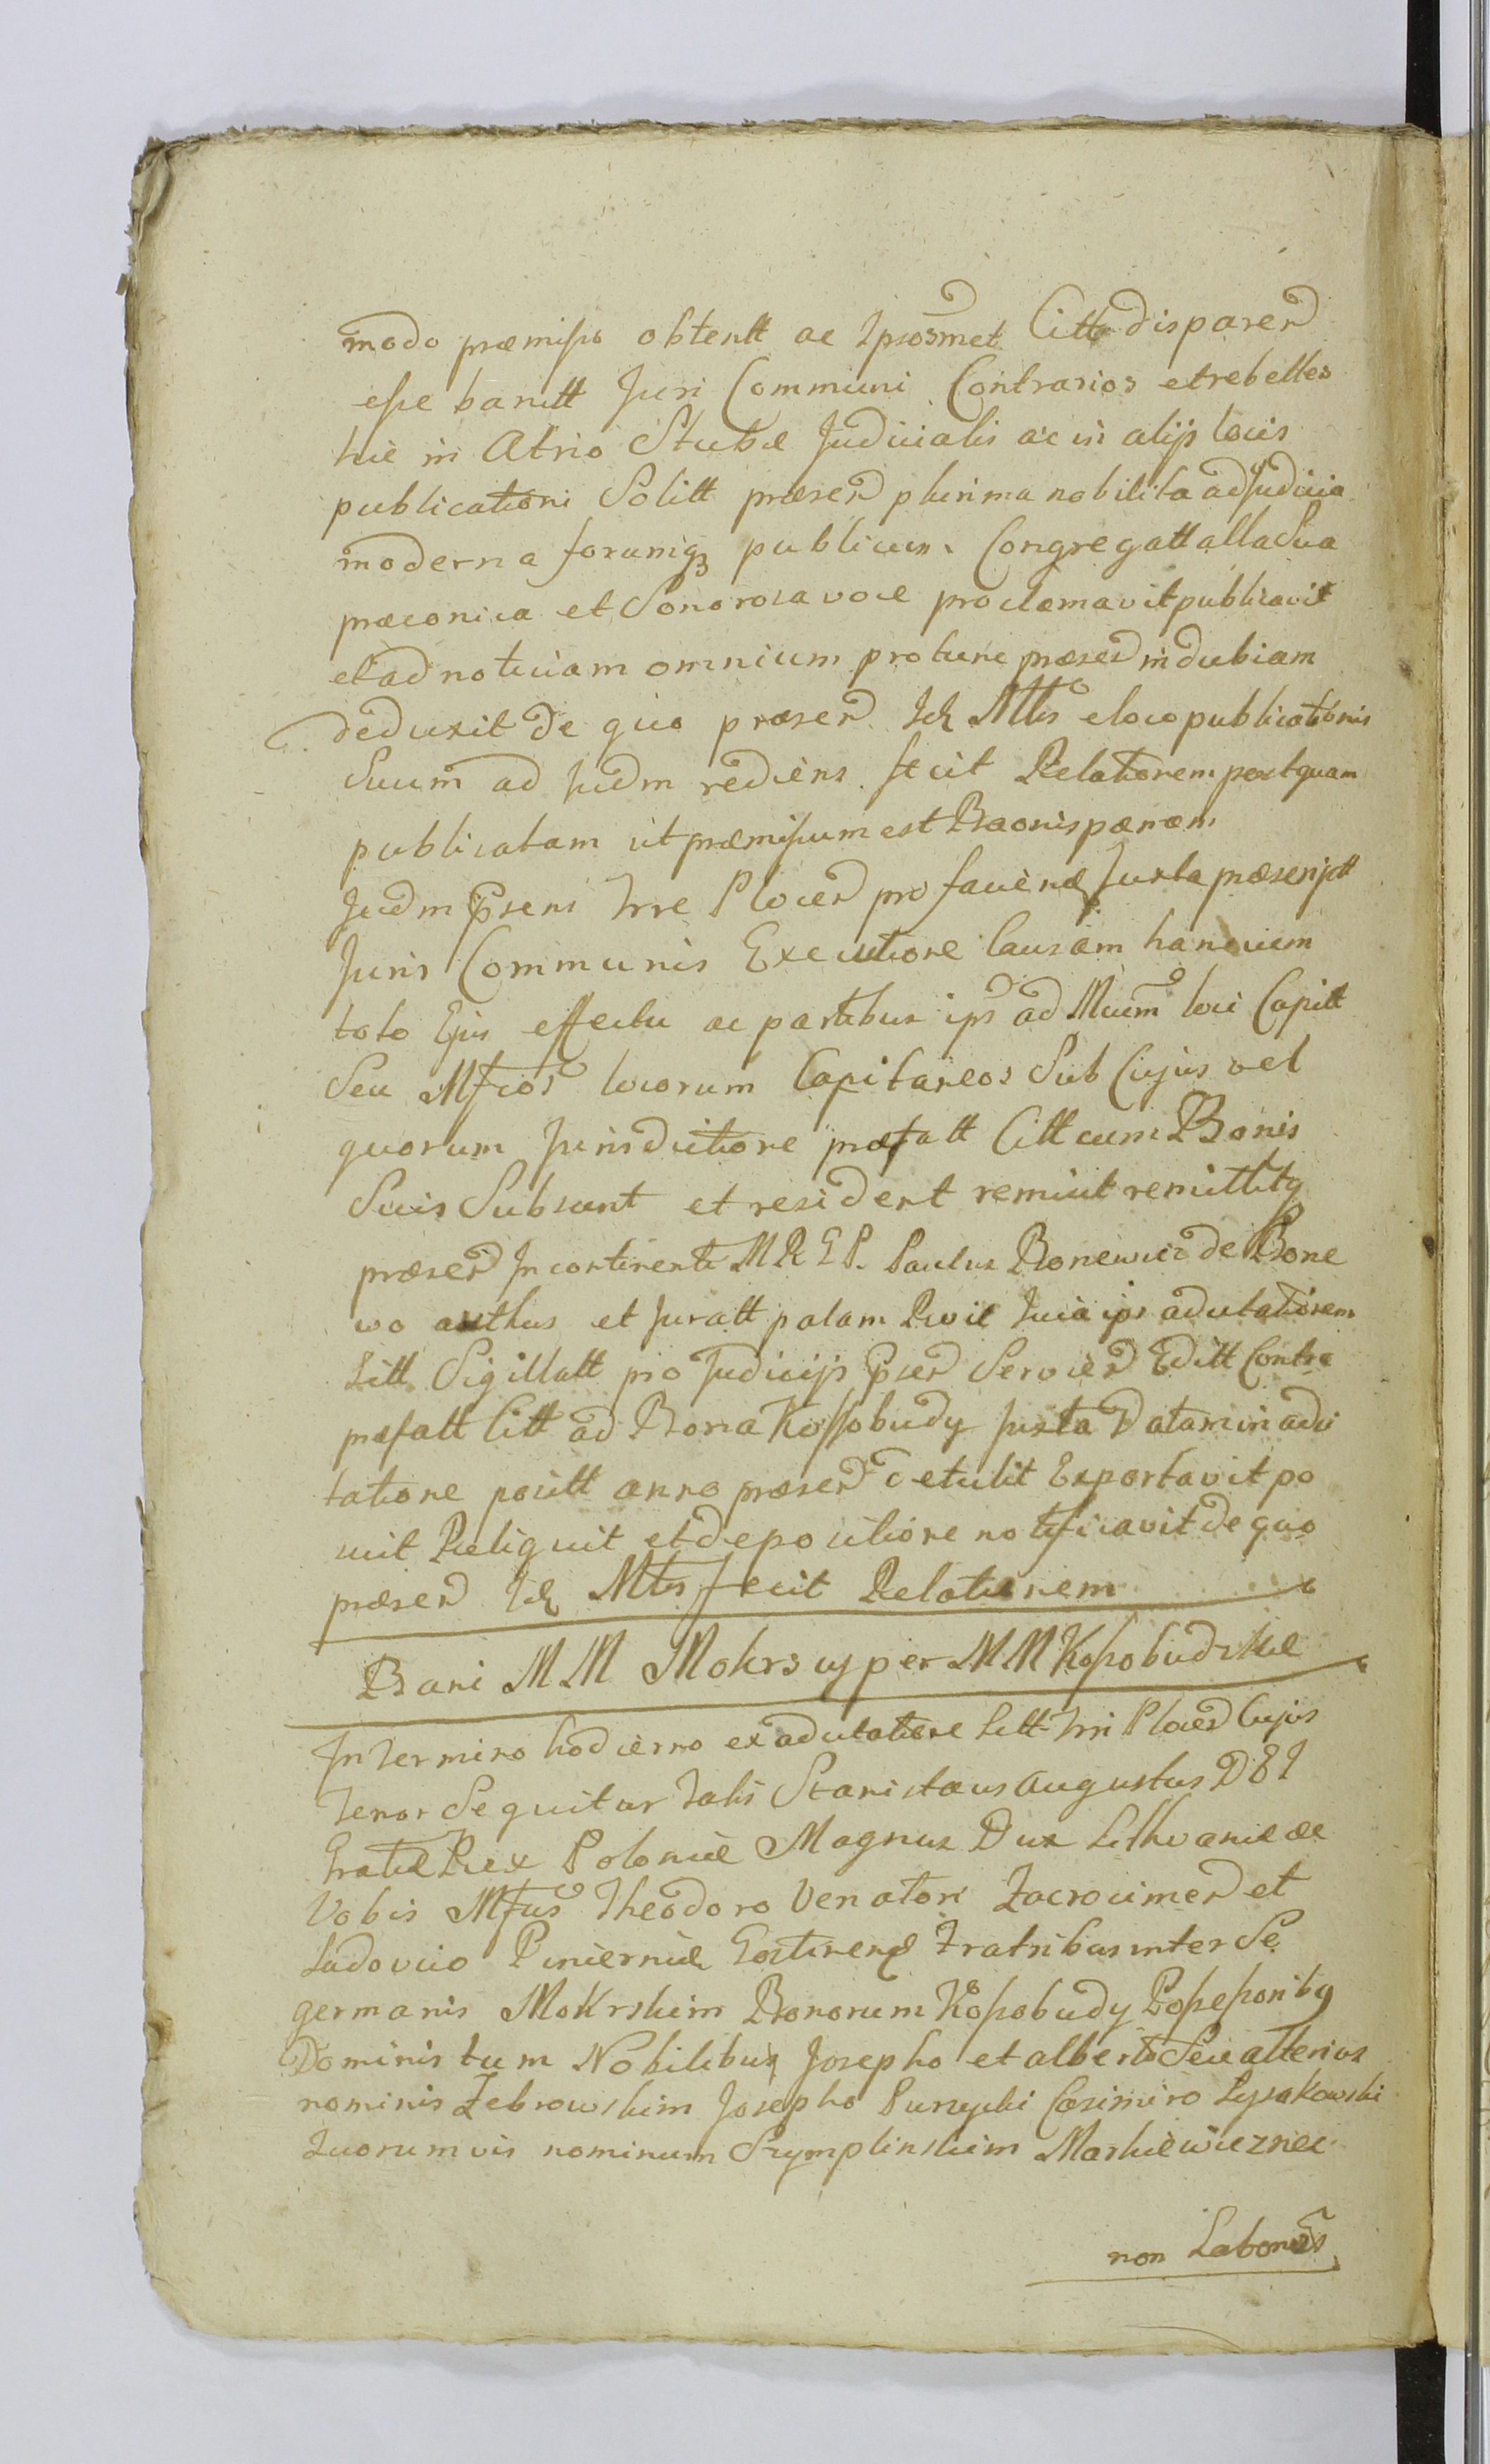 modo præmisso obtentt ac Ipsosmet Citt disparend
esse banitt Juri Communi Contrarios et rebelles
hic in Atrio Stubæ Judicialis ac in alijs locis
publicationi Solitt præsend plurima nobilita ad Judicia
moderna forumq; publicum Congregatt alta Sua
præconica et Sonorosa voce proclamavit publicavit
et ad notitiam omnium pro tunc præsend indubiam
deduxit de quo præsend Idq Mtris e loco publicationis
Suum ad Judm rediens fecit Relationem post quam
publicatam ut præmissum est Baonis pænam
Judm Psens Trre Plocen pro faciend Juxta præscriptt
Juris Communis Executione Causam hanc cum
toto Ejus effectu ac partibus ips ad Mcum loci Capitt
Seu Mfcos locorum Capitaneos Sub Cujus vel
quorum Jurisdictione præfatt Citt cum Bonis
Suis Subsunt et resident remisit remittitq
præsend In continenti M R E P. Paulus Bonewicz de Bone
wo authus et Juratt palam Rvit Quia ips ad citationem
Litt Sigillatt pro Judicijs Psend Serviend Editt Contra
præfatt Citt ad Bona Kossobudy Juxta Datam in adci
tatione positt anno præsend detulit Exportavit po
suit Reliquit et de positione notificavit de quo
præsend Idq Mtris fecit Relationem
Bani M M Mokrscy per M M Kossobudzkie
In Termino hodierno ex adcitatione Litt Trri Plocen Cujus
Tenor Sequitur Talis Stanislaus Augustus D E I
Gratia Rex Poloniæ Magnus Dux Lithvaniæ &c
Vobis Mfcis Theodoro Venatori Zacrocimen et
Ludovico Pincernæ Gostinend Fratribus inter Se
germanis Mokrskim Bonorum Kossobudy Possessoribq
Dominis tum Nobilibus Josepho et alberto Seu alterius
nominis Zebrowskim Josepho Purzycki Casimiro Lysakowski
Quorumvis nominum Szymplinskim Markiewicz nec
non Laboriosis